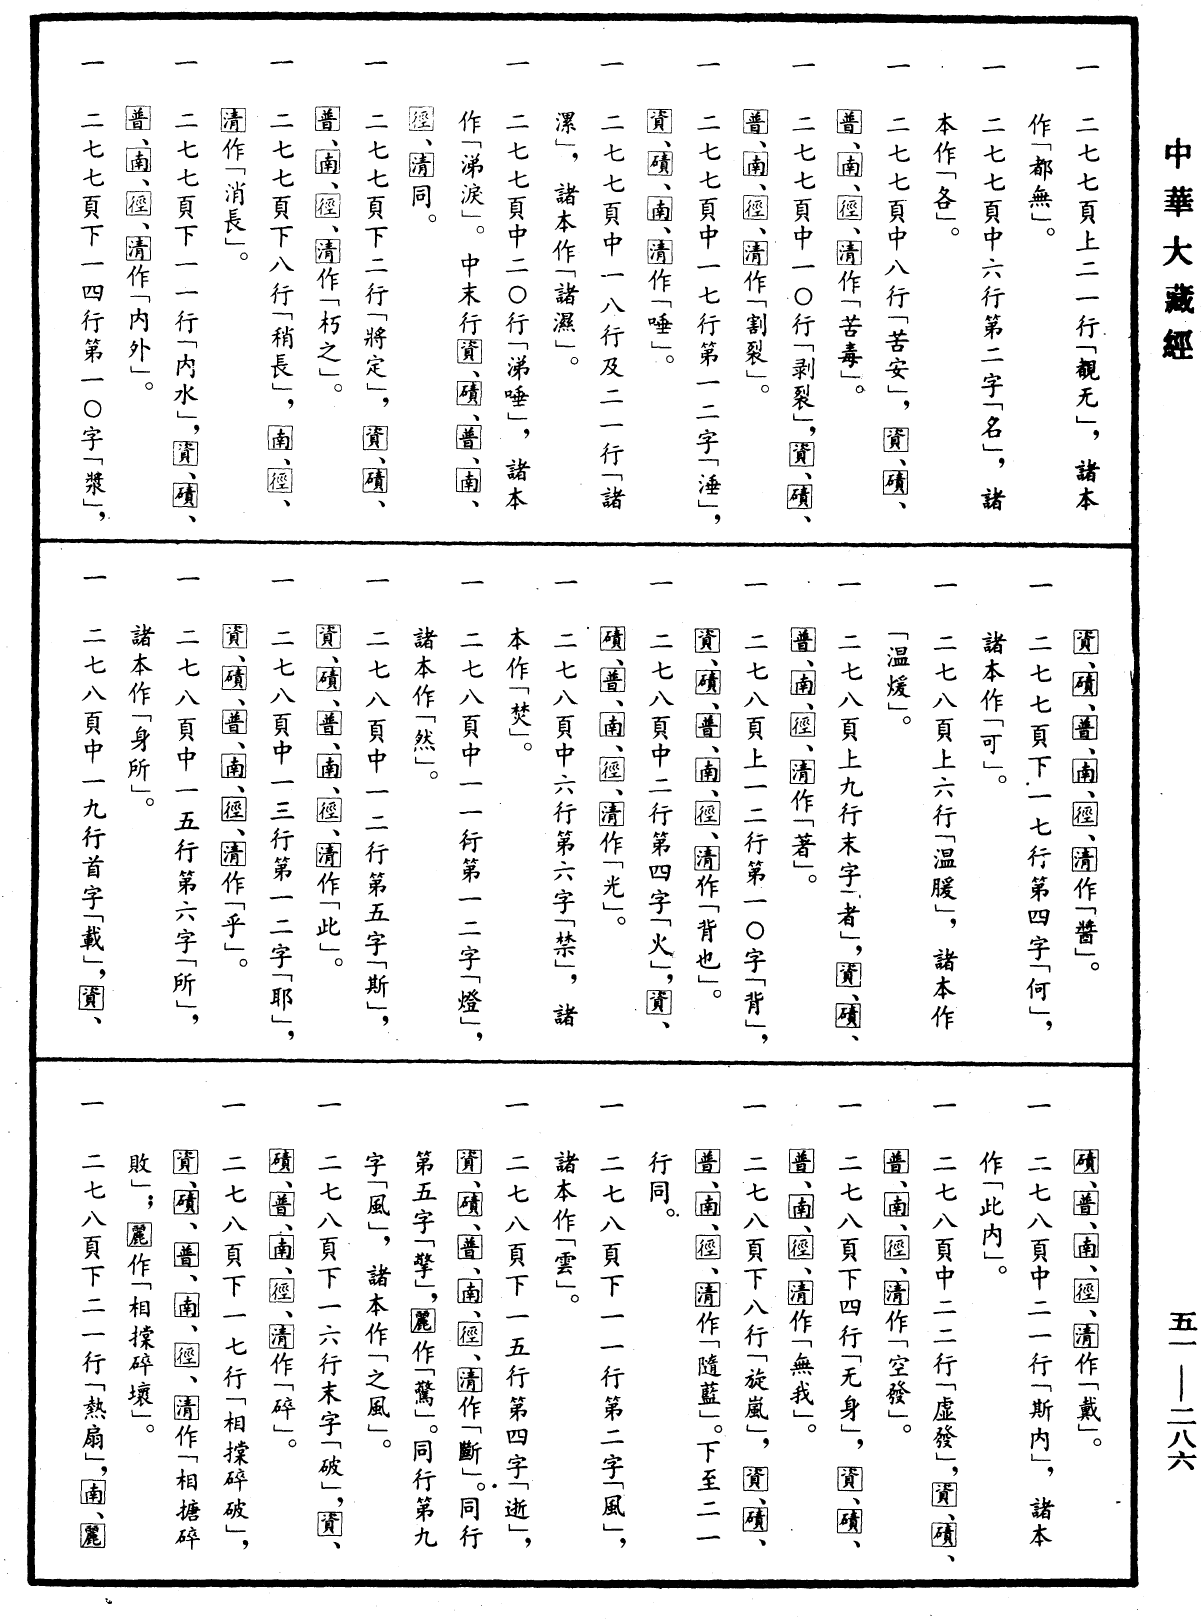 中華大藏經
一　二七七頁上二一行「覩无」，諸本
作「都無」。
一　二七七頁中六行第二字「名」，諸
本作「各」。
一　二七七頁中八行「苦安」，資、磧、
普、南、徑、清作「苦毒」。
一　二七七頁中一〇行「剥裂」，資、磧、
普、南、徑、清作「割裂」。
一　二七七頁中一七行第一二字「涶」，
資、磧、南、清作「唾」。
一　二七七頁中一八行及二一行「諸
漯」，諸本作「諸濕」。
一　二七七頁中二〇行「涕唾」，諸本
作「涕淚」。中末行資、磧、普、南、
徑、清同。
一　二七七頁下二行「將定」，資、磧、
普、南、徑、清作「朽之」。
一　二七七頁下八行「稍長」，南、徑、
清作「消長」。
一　二七七頁下一一行「内水」，資、磧、
普、南、徑、清作「内外」。
一　二七七頁下一四行第一〇字「漿」，
資、磧、普、南、徑、清作「醬」。
一　二七七頁下一七行第四字「何」，
諸本作「可」。
一　二七八頁上六行「温腝」，諸本作
「温煖」。
一　二七八頁上九行末字「者」，資、磧、
普、南、徑、清作「著」。
一　二七八頁上一二行第一〇字「背」，
資、磧、普、南、徑、清作「背也」。
一　二七八頁中二行第四字「火」，資、
磧、普、南、徑、清作「光」。
一　二七八頁中六行第六字「禁」，諸
本作「焚」。
一　二七八頁中一一行第一二字「燈」，
諸本作「然」。
一　二七八頁中一二行第五字「斯」，
資、磧、普、南、徑、清作「此」。
一　二七八頁中一三行第一二字「耶」，
資、磧、普、南、徑、清作「乎」。
一　二七八頁中一五行第六字「所」，
諸本作「身所」。
一　二七八頁中一九行首字「載」，資、
磧、普、南、徑、清作「戴」。
一　二七八頁中二一行「斯内」，諸本
作「此内」。
一　二七八頁中二二行「虛發」，資、磧、
普、南、徑、清作「空發」。
一　二七八頁下四行「无身」，資、磧、
普、南、徑、清作「無我」。
一　二七八頁下八行「旋嵐」，資、磧、
普、南、徑、清作「隨藍」。下至二一
行同。
一　二七八頁下一一行第二字「風」，
諸本作「雲」。
一　二七八頁下一五行第四字「逝」，
資、磧、普、南、徑、清作「斷」。同行
第五字「擎」，麗作「驚」。同行第九
字「風」，諸本作「之風」。
一　二七八頁下一六行末字「破」，資、
磧、普、南、徑、清作「碎」。
一　二七八頁下一七行「相㨶碎破」，
資、磧、普、南、徑、清作「相搪碎
敗」；麗作「相㨶碎壞」。
一　二七八頁下二一行「熱扇」，南、麗
五一——二八六